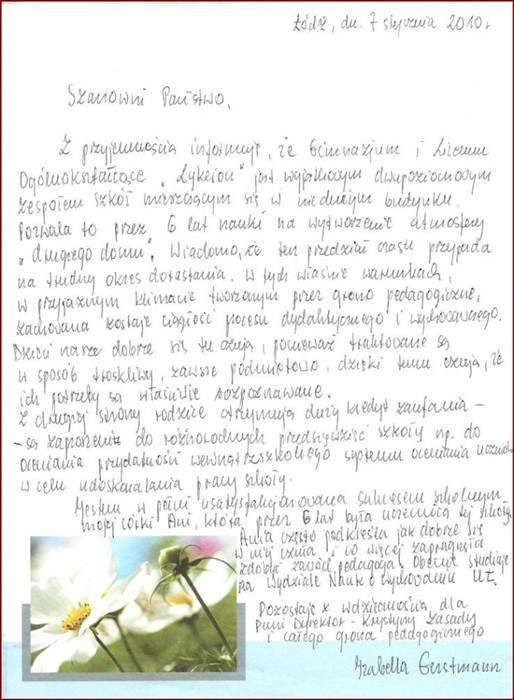 Łódź, dn. 7 stycznia 2010r
Szanowni Państwo,
Z przyjemnością informuję, że Gimnazjum i Liceum
Ogólnokształcące "Lykeion" jest wyjątkowym dwupoziomowym
zespołem szkół mieszczącym się w niedużym budynku.
Pozwala to przez 6 lat nauki na wytworzenie atmosfery
"drugiego domu". Wiadomo, że ten przedział czasu przypada
na trudny okres dorastania. W tych właśnie warunkach,
w przyjaznym klimacie tworzonym przez grono pedagogiczne,
zachowana zostaje ciągłość procesu dydaktycznego i wychowawczego.
Dzieci nasze dobrze się tu czują, ponieważ traktowane są
w sposób troskliwy, zawsze podmiotowo, dzięki temu czują, że
ich potrzeby są właściwie rozpoznawane.
Z drugiej strony rodzice otrzymują duży kredyt zaufania -
- są zaproszeni do różnorodnych przedsięwzięć szkoły np. do
oceniania przydatności wewnątrzszkolnego systemu oceniania uczniów
w celu udoskonalania pracy szkoły.
Jestem w pełni usatysfakcjonowana sukcesem szkolnym
mojej córki Ani, która przez 6 lat była uczennicą tej szkoły.
Ania często podkreśla jak dobrze się
w niej czuła i co więcej zapragnęła
zdobyć zawód pedagoga. Obecnie studiuje
na Wydziale Nauk o Wychowaniu UŁ.
Pozostaję z wdzięcznością dla
Pani Dyrektor - Krystyny Zasady
i całego grona pedagogicznego
Izabella Gerstmann